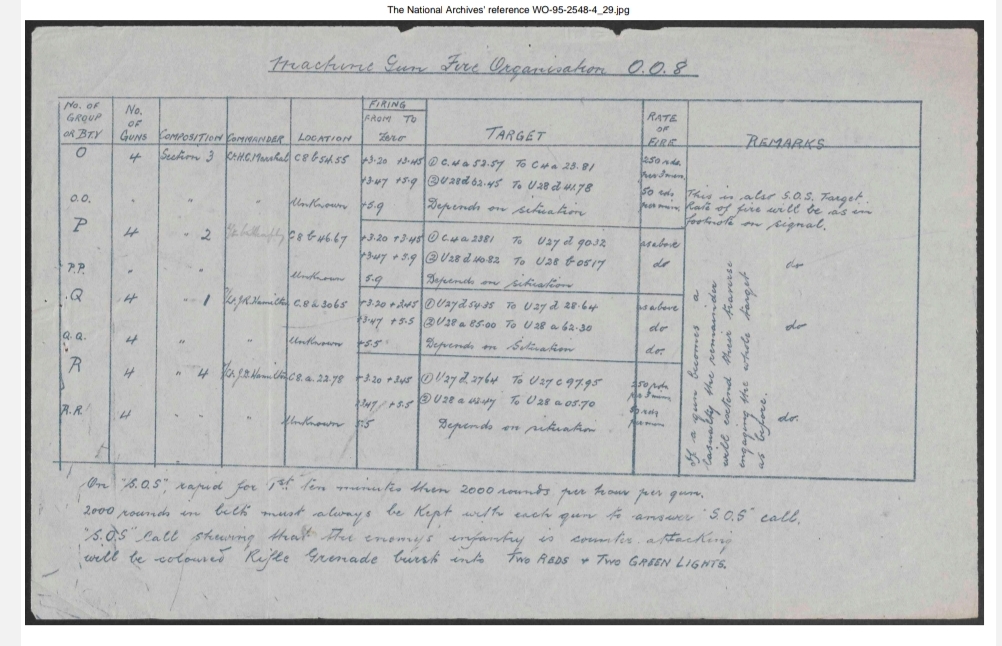 The National Archives' reference WO-95-2548-4_29.jpg
Machine Gun Fire Organisation O.O.8
No. OF GROUP OR BTY
No. OF GUNS
COMPOSITION
COMMANDER
LOCATION
FIRING FROM TO Zero
TARGET
RATE OF FIRE
REMARKS
O 4 Section 3 Lt.H.C.Marshal C8 b 54.55 +3.20 +3.45 ① C.4 a 53.57 To C4 a 23.81 250 rds. per 3 min.
+3.47 +5.9 ② U28 d 62.45 To U28 d 41.78 50 rds per min.
O.O. " " " Unknown +5.9 Depends on situation
This is also S.O.S. Target.
Rate of fire will be as in
footnote on signal.
P 4 " 2 C8 b 46.67 +3.20 +3.45 ① C.4 a 2381 To U27 d 90.32 as above
+3.47 +5.9 ② U28 d 40.82 To U28 b 05.17 do do
P.P. " " Unknown 5.9 Depends on situation
Q 4 " 1 C.8 a 3065 +3.20 +3.45 ① U27 d 54.35 To U27 d 28.64 as above
+3.47 +5.5 ② U28 a 85.00 To U28 a 62.30 do do
Q.Q. 4 " " Unknown +5.5 Depends on Situation do.
R 4 " 4 C8.a.22.78 +3.20 +3.45 ① U27 d 2764 To U27 c 97.95 250 rds. per 3 min
+3.47 +5.5 ② U28 a 43.47 To U28 a 05.70 50 rds per min
R.R. 4 " " " Unknown 5.5 Depends on situation do.
If a gun becomes a
casualty the remainder
will extend their traverse
engaging the whole target
as before.
On "S.O.S", rapid for 1st ten minutes then 2000 rounds per hour per gun.
2000 rounds in belts must always be kept with each gun to answer "S.O.S" call.
"S.O.S" call shewing that the enemy's infantry is counter attacking
will be coloured Rifle Grenade burst into TWO REDS + TWO GREEN LIGHTS.